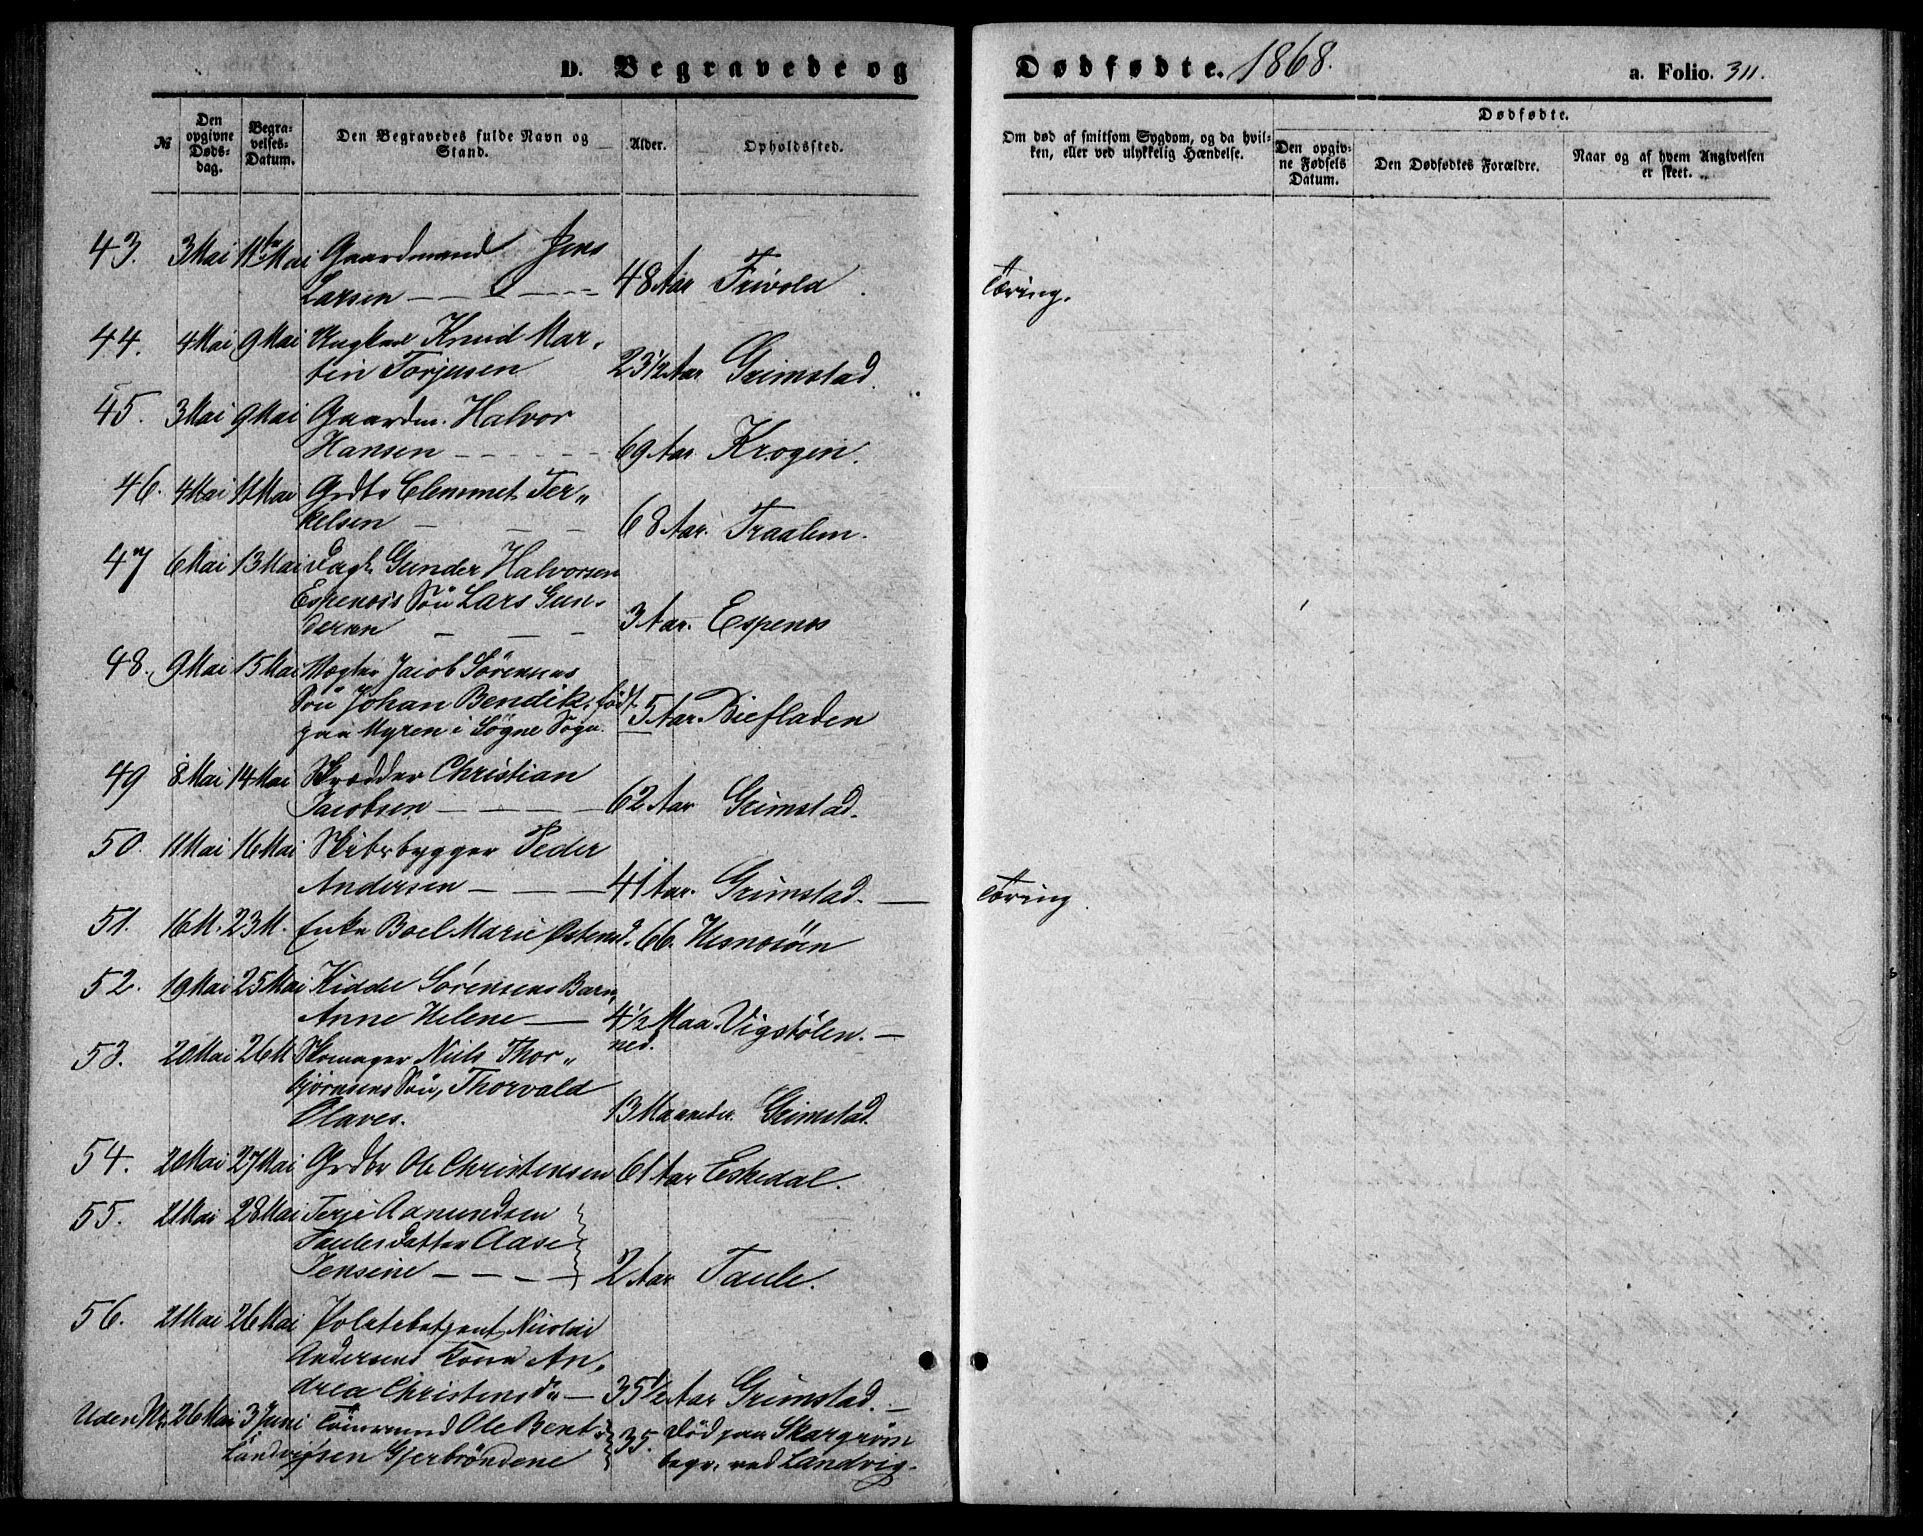 D. Begravede og Dødfødte. 1868.
a. Folio. 311.
№
Den opgivne Døds-dag.
Begra-velses-Datum.
Den Begravedes fulde Navn og Stand.
Alder.
Opholdssted.
Om død af smitsom Sygdom, og da hvil-
ken, eller ved ulykkelig Hændelse.
Dødfødte.
Den opgiv-ne Fødsels Datum.
Den Dødfødtes Forældre.
Naar og af hvem Angivelsen er skeet.
43. 3 Mai 11te Mai Gaardmand Jens
Larsen — — — — 48 Aar Frivold Tæring.
44. 4 Mai 9 Mai Ungkarl Knud Mar-
tin Torjusen 23 1/2 Aar Grimstad.
45. 3 Mai 9 Mai Gaardm. Halvor
Hansen — — — — 69 Aar Krogen.
46. 4 Mai 11 Mai Grdbr Clemmet Ter-
kelsen — — — 68 Aar. Traalem.
47 6 Mai 13 Mai Dagl. Gunder Halvorsen
Espenæs Søn Lars Gun-
dersen — — — 3 Aar. Espenæs
48. 9 Mai 15 Mai Vægter Jacob Sørensens
Søn Johan Bendik, født
paa Myren i Søgne Sogn. 5 Aar. Biefladen
49 8 Mai 14 Mai Skrædder Christian
Jacobsen — — — — 62 Aar Grimstad.
50. 11 Mai 16 Mai Skibsbygger Peder
Andersen — — — 41 Aar. Grimstad. — Tæring
51. 16 M. 23 M. Enke Boel Marie Østensd. 66. Hesnesøen
52. 19 Mai 25 Mai Kidde Sørensens Barn,
Anne Helene — 4 1/2 Maa- Vigstølen. —
ned.
53. 20 Mai 26 M Skomager Niels Thor-
bjørnsens Søn, Thorvald
Olaves. 13 Maaneder. Grimstad.
54. 20 Mai 27 Mai Grdbr Ole Christensen 61 Aar Eskedal.
55. 21 Mai 28 Mai Terje Aamundsen
Taules Datter Aase
Jensine — — — — 2 Aar Taule.
56. 21 Mai 26 Mai Politibetjent Nicolai
Andersens Kone An-
drea Christensdr — 35 1/2 Aar Grimstad. —
Uden Nr 26 Mai 3 Juni Tømmermd Ole Bent- 35. Død paa Skargrøn
Landvig sen Gjerbrøndene begr. ved Landvig.